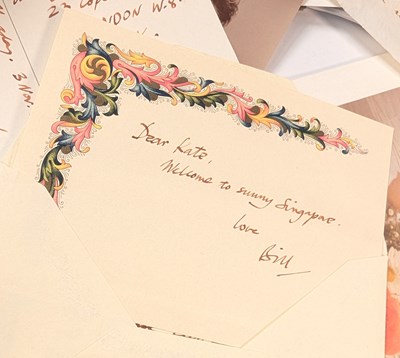 23 Cop
LONDON W.8.
3 Nov.
Dear Kate,
Welcome to sunny Singapore.
love
Bill